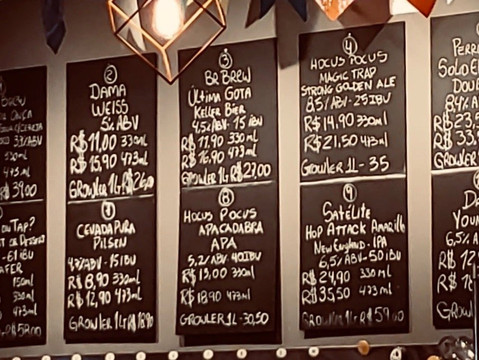 BREW
330ml
473ml
39,00
2
DAMA
WEISS
5% ABV
R$ 11,00 330ml
R$ 15,90 473ml
GROWLER 1L R$
3
BR BREW
ÚLTIMA GOTA
KELLER BIER
4,5% ABV - 15 IBU
R$ 11,90 330 ml
R$ 16,90 473ml
GROWLER 1L R$ 27,00
4
HOCUS POCUS
MAGIC TRAP
STRONG GOLDEN ALE
8,5% ABV - 25 IBU
R$ 14,90 330ml
R$ 21,50 473ml
GROWLER 1L - 35
SOLO
DOU
R$ 23,5
R$ 33,
GROWLER
OU TAP?
330ml
473ml
7
CEVADA PURA
PILSEN
R$ 8,90 330ml
R$ 12,90 473ml
GROWLER 1L R$
8
HOCUS POCUS
APACADABRA
APA
5,2% ABV 40 IBU
R$ 13,00 330ml
R$ 18,90 473ml
GROWLER 1L - 30,50
9
SATÉLITE
HOP ATTACK AMARILLO
NEW ENGLAND - IPA
6,5% ABV - 50 IBU
R$ 24,90 330 ml
R$ 35,50 473 ml
GROWLER 1L R$ 59,00
YOU
6,5% A
R$ 12
GROWL